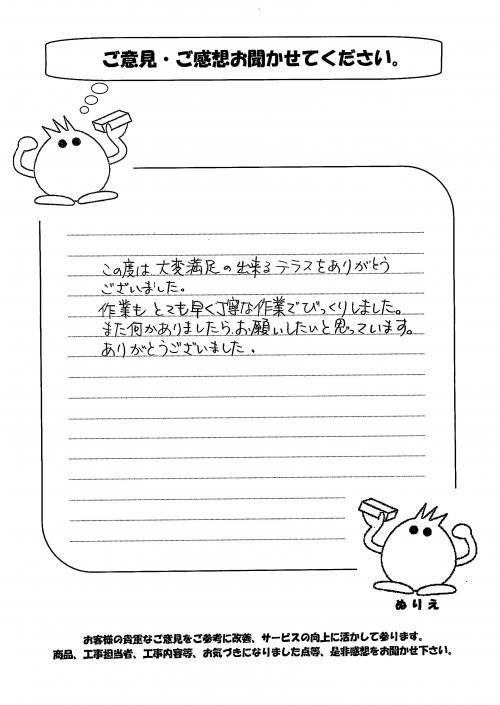 ご意見・ご感想お聞かせてください。
この度は大変満足の出来るテラスをありがとう
ございました。
作業も とても早く丁寧な作業でびっくりしました。
また何かありましたら、お願いしたいと思っています。
ありがとうございました。
ぬりえ
お客様の貴重なご意見をご参考に改善、サービスの向上に活かして参ります。
商品、工事担当者、工事内容等、お気づきになりました点等、是非感想をお聞かせ下さい。